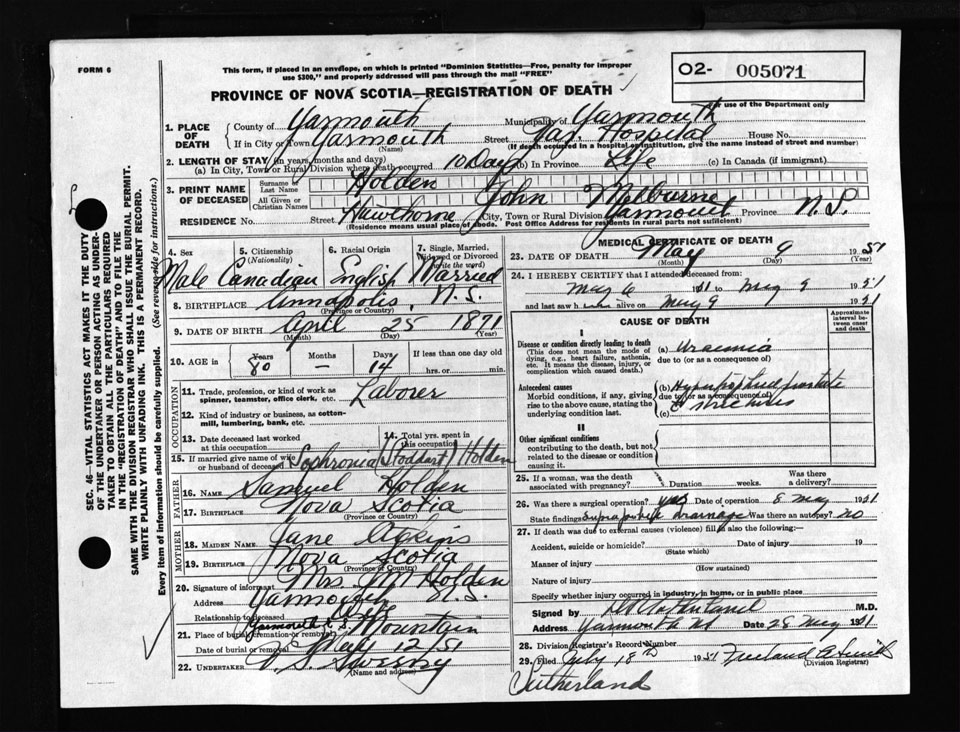 FORM 6
This form, if placed in an envelope, on which is printed "Dominion Statistics—Free, penalty for improper
use $300," and properly addressed will pass through the mail "FREE"
02- 005071
For use of the Department only
PROVINCE OF NOVA SCOTIA—REGISTRATION OF DEATH
1. PLACE OF DEATH
County of Yarmouth Municipality of Yarmouth
If in City or Town Yarmouth (Name) Street Yar. Hospital House No.
(If death occurred in a hospital or institution, give the name instead of street and number)
2. LENGTH OF STAY (in years, months and days)
(a) In City, Town or Rural Division where death occurred 10 Days (b) In Province Life (c) In Canada (if immigrant)
3. PRINT NAME OF DECEASED
Surname or Last Name Holden
All Given or Christian Names John Melburne
RESIDENCE No. Street Hawthorne City, Town or Rural Division Yarmouth Province N.S.
(Residence means usual place of abode. Post Office Address for residents in rural parts not sufficient)
4. Sex Male
5. Citizenship (Nationality) Canadian
6. Racial Origin English
7. Single, Married, Widowed or Divorced (write the word) Married
8. BIRTHPLACE Annapolis, N.S.
(Province or Country)
9. DATE OF BIRTH April 25 1871
(Month) (Day) (Year)
10. AGE in Years 80 Months — Days 14 If less than one day old
hrs. or min.
OCCUPATION
11. Trade, profession, or kind of work as
spinner, teamster, office clerk, etc. Laborer
12. Kind of industry or business, as cotton-
mill, lumbering, bank, etc.
13. Date deceased last worked
at this occupation
14. Total yrs. spent in
this occupation
15. If married give name of wife
or husband of deceased Sophronia (Stoddart) Holden
FATHER
16. NAME Samuel Holden
17. BIRTHPLACE Nova Scotia
(Province or Country)
MOTHER
18. MAIDEN NAME Jane Adkins
19. BIRTHPLACE Nova Scotia
(Province or Country)
20. Signature of informant Mrs. J M Holden
Address Yarmouth N.S.
Relationship to deceased Wife
21. Place of burial, cremation or removal Yarmouth N.S. Mountain
Date of burial or removal May 12/51
22. UNDERTAKER V. S. Sweeny
(Name and Address)
MEDICAL CERTIFICATE OF DEATH
23. DATE OF DEATH May 9 1951
(Month) (Day) (Year)
24. I HEREBY CERTIFY that I attended deceased from
May 6 51 to May 9 1951
and last saw h alive on May 9 1951
CAUSE OF DEATH
Approximate interval between onset and death
I
Disease or condition directly leading to death
(This does not mean the mode of dying, e.g., heart failure, asthenia, etc. It means the disease, injury, or complication which caused death.)
(a) Uraemia
due to (or as a consequence of)
Antecedent causes
Morbid conditions, if any, giving rise to the above cause, stating the underlying condition last.
(b) Hypertrophied prostate
due to (or as a consequence of)
(c) strictures
II
Other significant conditions
contributing to the death, but not related to the disease or condition causing it.
25. If a woman, was the death
associated with pregnancy? Duration weeks. Was there a delivery?
26. Was there a surgical operation? yes Date of operation 8 May 1951
State findings Suprapubic drainage Was there an autopsy? no
27. If death was due to external causes (violence) fill in also the following:—
Accident, suicide or homicide? Date of injury 19
(State which)
Manner of injury
(How sustained)
Nature of injury
Specify whether injury occurred in industry, in home, or in public place
Signed by M.D.
Address Yarmouth NS Date 28 May 1951
28. Division Registrar's Record Number
29. Filed July 18th 1951 Freeland A Smith
(Division Registrar)
Sutherland
SEC. 46—VITAL STATISTICS ACT MAKES IT THE DUTY
OF THE UNDERTAKER OR PERSON ACTING AS UNDER-
TAKER TO OBTAIN ALL THE PARTICULARS REQUIRED
IN THE "REGISTRATION OF DEATH" AND TO FILE THE
SAME WITH THE DIVISION REGISTRAR WHO SHALL ISSUE THE BURIAL PERMIT.
WRITE PLAINLY WITH UNFADING INK. THIS IS A PERMANENT RECORD.
Every item of information should be carefully supplied. (See reverse side for instructions.)